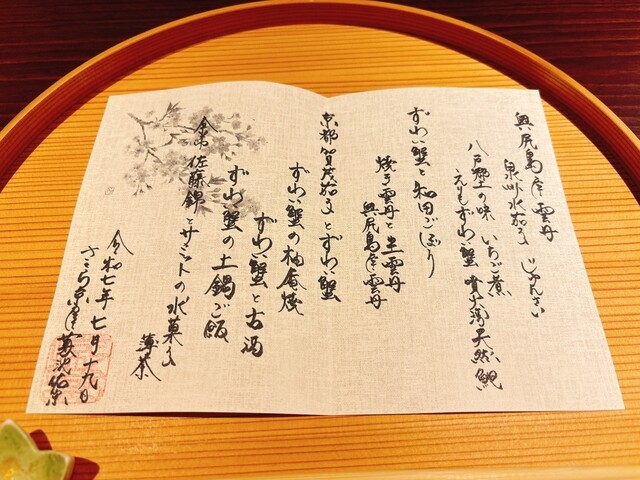 奥尻島産雲丹
泉州水茄子 じゅんさい
八戸郷土の味 いちご煮
えりもずわい蟹 噴火湾天然
ずわい蟹と和田ごぼう
焼き雲丹と生雲丹
奥尻島産雲丹
京都賀茂茄子とずわい蟹
ずわい蟹の柚庵焼
ずわい蟹と古酒
ずわい蟹の土鍋ご飯
佐藤錦とサミットの水菓子
薄茶
令和七年七月十九日